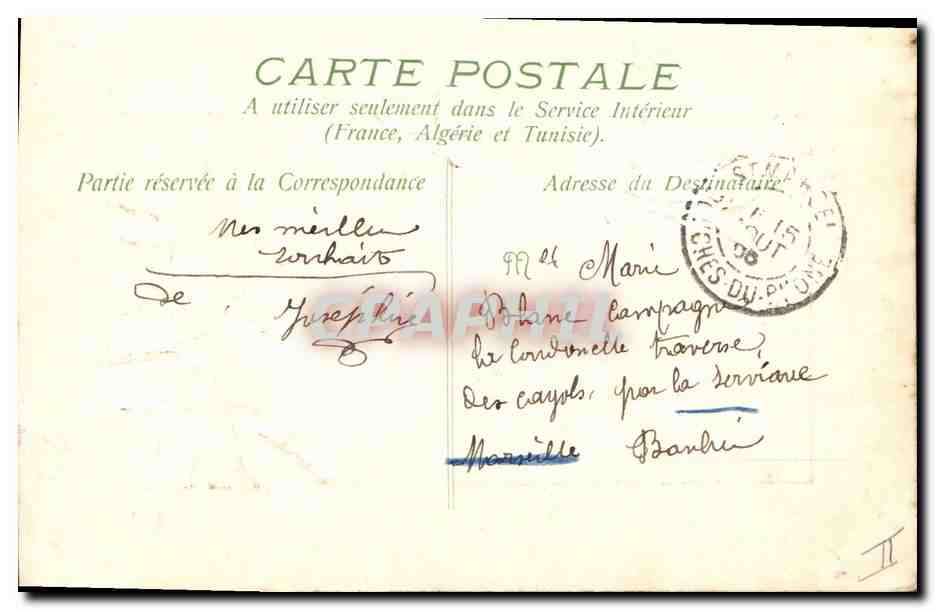 CARTE POSTALE
A utiliser seulement dans le Service Intérieur
(France, Algérie et Tunisie).
Partie réservée à la Correspondance
Adresse du Destinataire
Mes meilleu
souhaits
de
Joséphine
Mlle Marie
Blanc Campagne
la Cordonelle traverse
des cayols, par la Serviane
Marseille Banlieu
ST MARCEL
AOUT
BOUCHES-DU-RHONE
CPARAMA
II